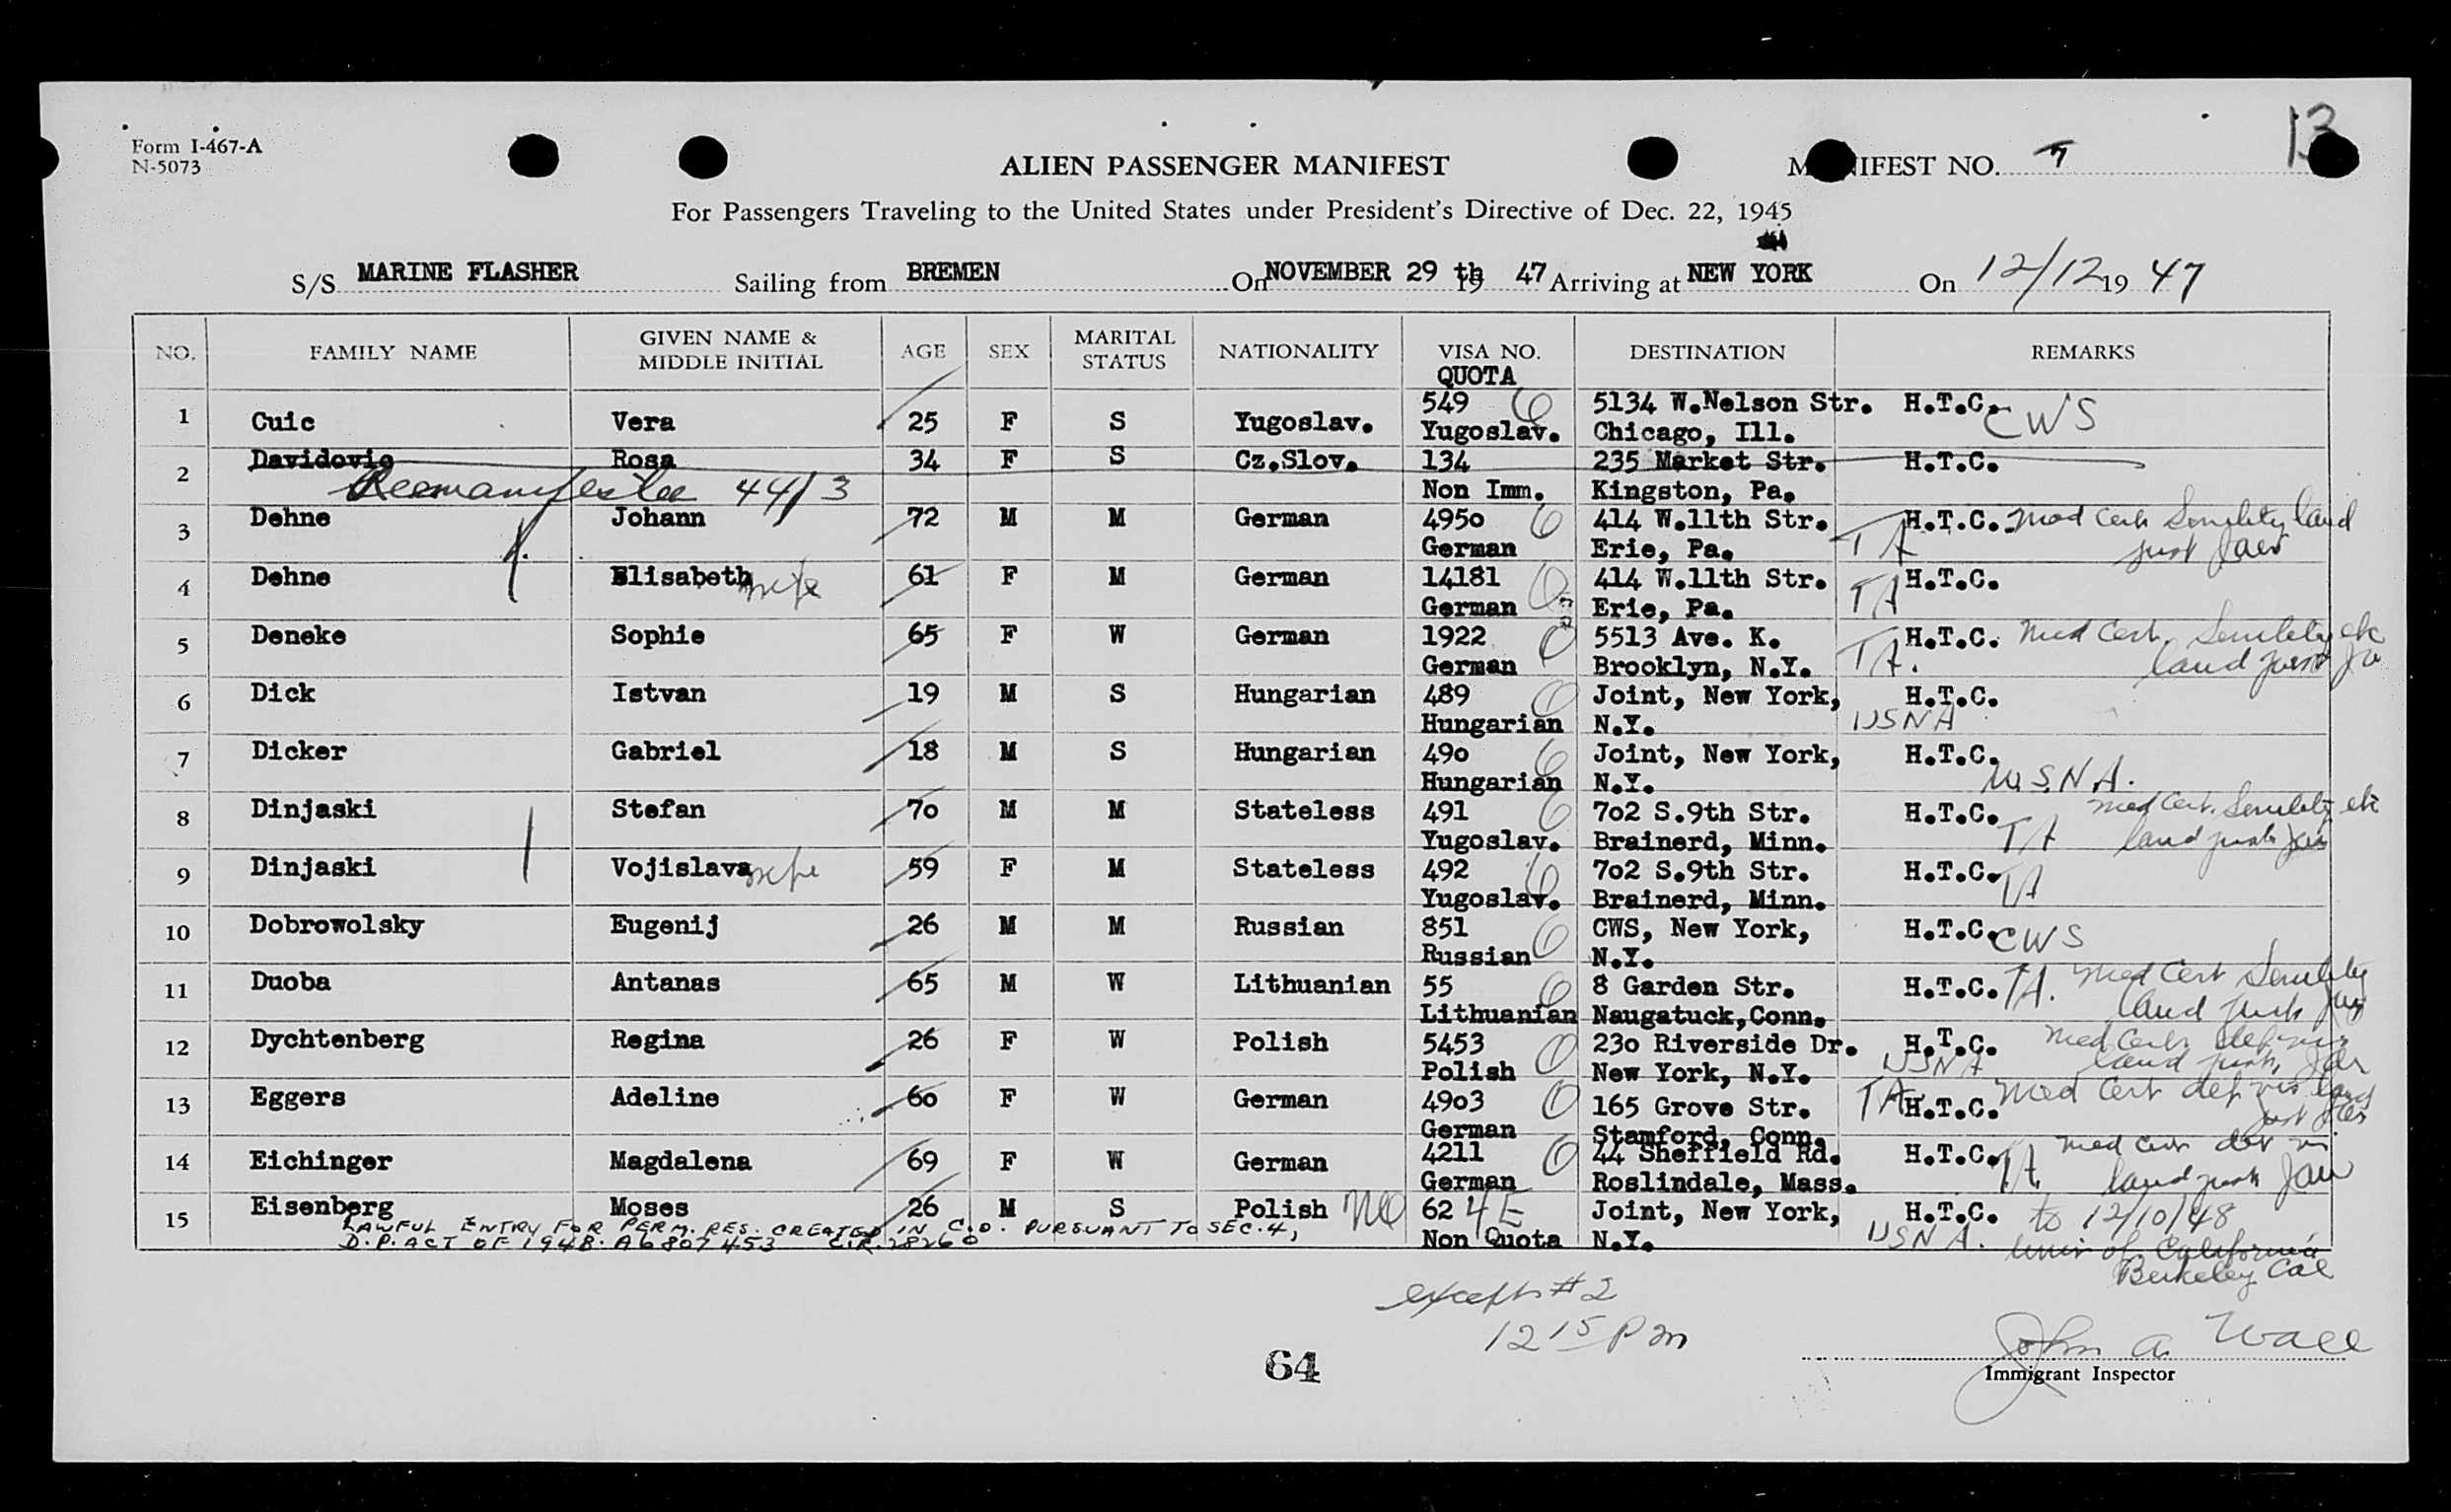 13
Form I-467-A
N-5073
ALIEN PASSENGER MANIFEST
MANIFEST NO. 7
For Passengers Traveling to the United States under President's Directive of Dec. 22, 1945
S/S MARINE FLASHER Sailing from BREMEN On NOVEMBER 29 th 19 47 Arriving at NEW YORK On 12/12 19 47
NO. FAMILY NAME GIVEN NAME & MIDDLE INITIAL AGE SEX MARITAL STATUS NATIONALITY VISA NO. QUOTA DESTINATION REMARKS
1 Cuic Vera 25 F S Yugoslav. 549 5134 W.Nelson Str. H.T.C. CWS
Yugoslav. Chicago, Ill.
2 Davidovic Rosa 34 F S Cz.Slov. 134 235 Market Str. H.T.C.
44/3 Non Imm. Kingston, Pa.
3 Dehne Johann 72 M M German 4950 414 W.11th Str. TA H.T.C. Med Cert Senility land
German Erie, Pa. just
4 Dehne Elisabeth wife 61 F M German 14181 414 W.11th Str. TA H.T.C.
German Erie, Pa.
5 Deneke Sophie 65 F W German 1922 5513 Ave. K. TA. H.T.C. Med Cert. Senility etc
German Brooklyn, N.Y. land just
6 Dick Istvan 19 M S Hungarian 489 Joint, New York, H.T.C.
Hungarian N.Y. USNA
7 Dicker Gabriel 18 M S Hungarian 490 Joint, New York, H.T.C.
Hungarian N.Y. U.S.N.A.
8 Dinjaski Stefan 70 M M Stateless 491 702 S.9th Str. H.T.C. Med Cert. Senility etc
Yugoslav. Brainerd, Minn. TA land just
9 Dinjaski Vojislava wife 59 F M Stateless 492 702 S.9th Str. H.T.C. TA
Yugoslav. Brainerd, Minn.
10 Dobrowolsky Eugenij 26 M M Russian 851 CWS, New York, H.T.C. CWS
Russian N.Y.
11 Duoba Antanas 65 M W Lithuanian 55 8 Garden Str. H.T.C. TA. Med Cert Senility
Lithuanian Naugatuck,Conn. land just
12 Dychtenberg Regina 26 F W Polish 5453 230 Riverside Dr. H.T.C. Med Cert def vis
Polish New York, N.Y. USNA land just
13 Eggers Adeline 60 F W German 4903 165 Grove Str. TA H.T.C. Med Cert def vis land
German Stamford, Conn. just
14 Eichinger Magdalena 69 F W German 4211 44 Sheffield Rd. H.T.C. TA Med Cert def vis
German Roslindale, Mass. land just
15 Eisenberg Moses 26 M S Polish NQ 62 4E Joint, New York, H.T.C. to 12/10/48
LAWFUL ENTRY FOR PERM. RES. CREATED IN C.O. PURSUANT TO SEC. 4,
D.P. ACT OF 1948. A6807453 C.R. 28260 Non Quota N.Y. USNA. Univ of California
Berkeley Cal
except #2
12 15 Pm
64
John A. Wall
Immigrant Inspector